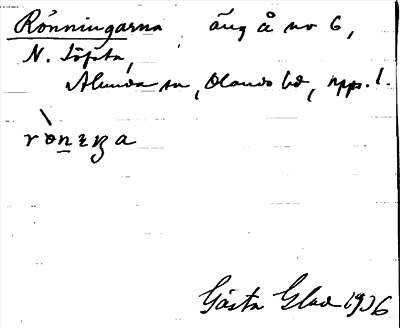 Rönningarna, äng å no 6,
N. Löfsta,
Alunda sn, Olands hd, Upps. l.
Gösta Glad 1936